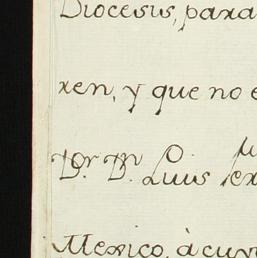 Diocesis, para
ren, y que no e
Dr. Dn. Luis
Mexico, à cuyo